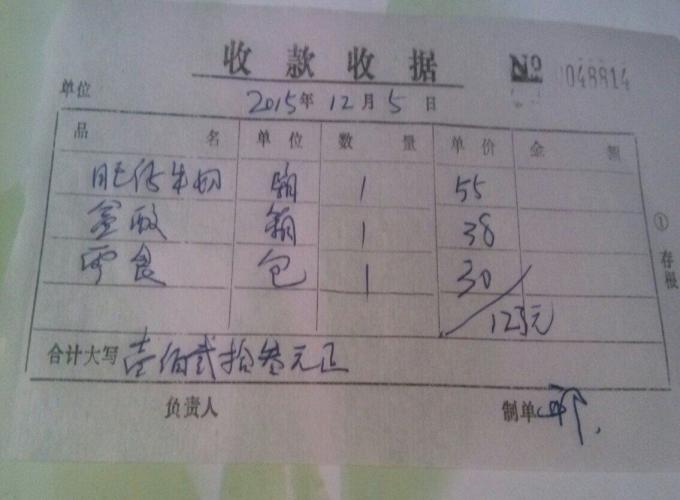 收款收据
No 048814
单位
2015年12月5日
品名 单位 数量 单价 金额
旺仔牛奶 箱 1 55
箱 1 38
零食 包 1 30
123元
合计大写 壹佰贰拾叁元正
负责人 制单
①存根